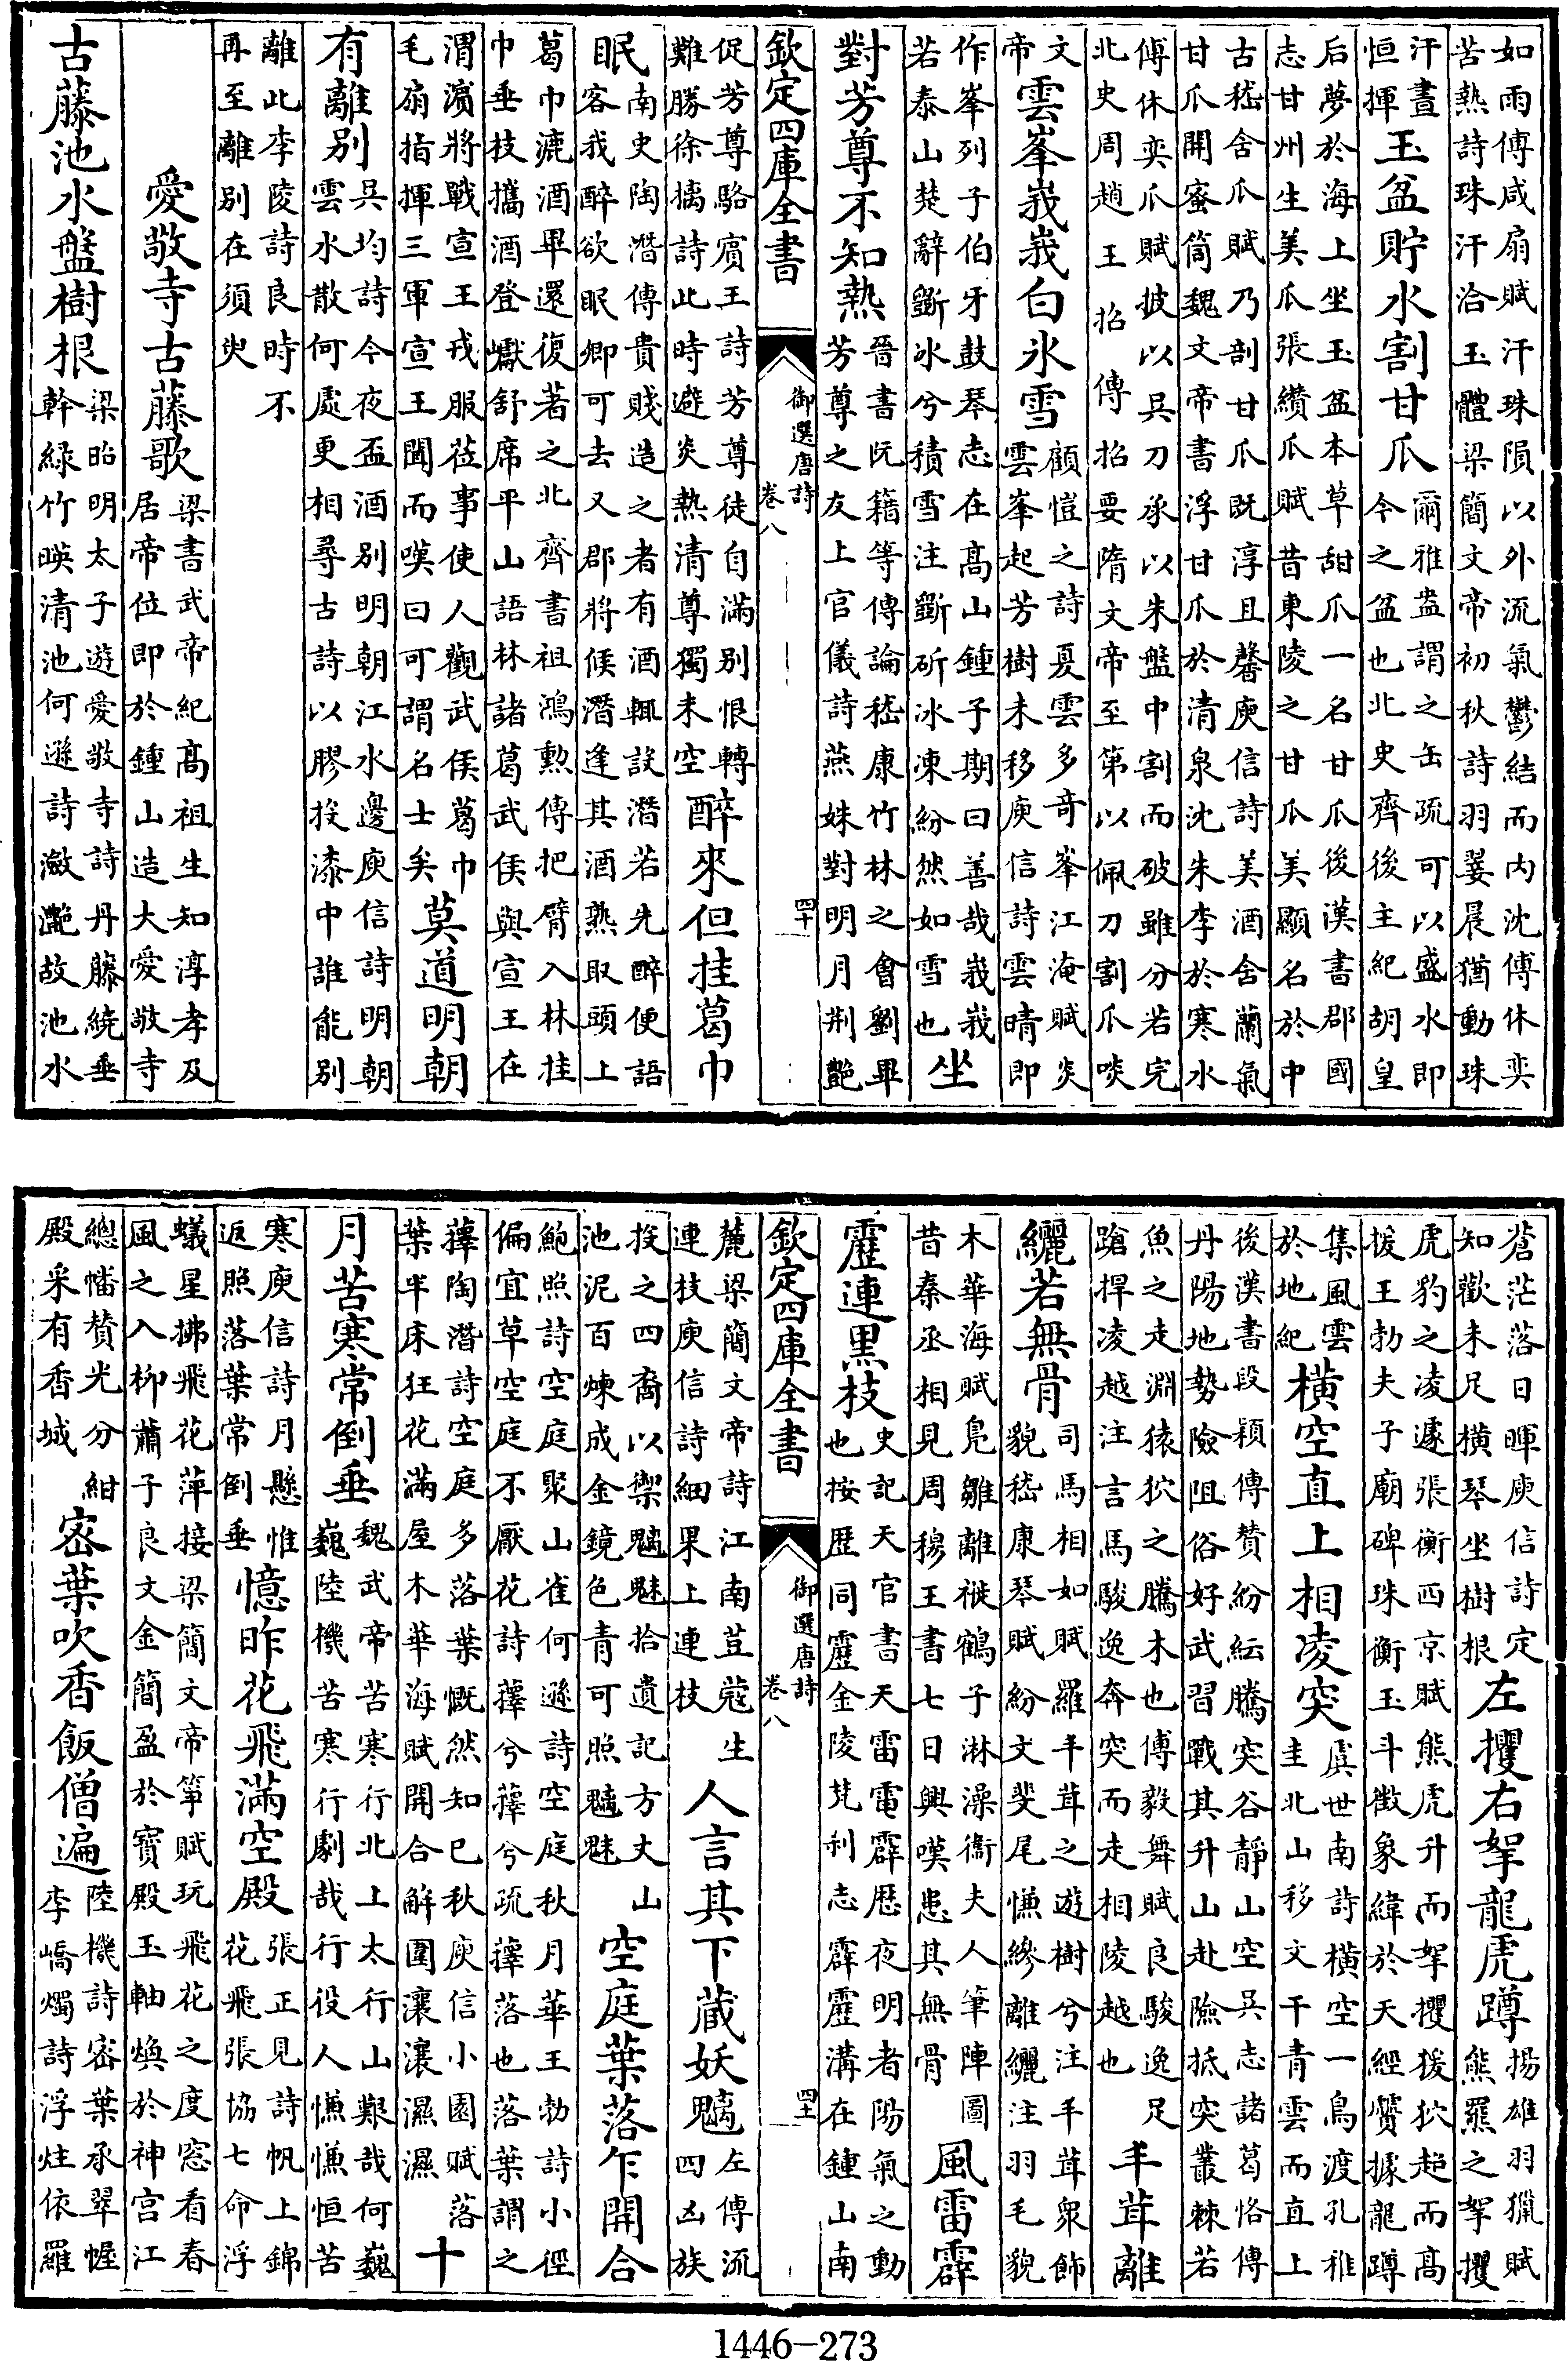 如雨傅咸扇賦汗珠隕以外流氣鬱結而内沈傅休奕
苦熱詩珠汗洽玉體梁簡文帝初秋詩羽翣晨猶動珠
汗晝
恒揮
玉盆貯水割甘瓜
爾雅盎謂之缶疏可以盛水即
今之盆也北史齊後主紀胡皇
后夢於海上坐玉盆本草甜瓜一名甘瓜後漢書郡國
志甘州生美瓜張纘瓜賦昔東陵之甘瓜美顯名於中
古嵇含瓜賦乃剖甘瓜既淳且馨庾信詩美酒含蘭氣
甘瓜開蜜筒魏文帝書浮甘瓜於清泉沈朱李於寒水
傅休奕瓜賦披以吳刀承以朱盤中割而破雖分若完
北史周趙王招傳招要隋文帝至第以佩刀割瓜啖
文
帝
雲峯峩峩白氷雪
顧愷之詩夏雲多奇峯江淹賦炎
雲峯起芳樹未移庾信詩雲晴即
作峯列子伯牙鼓琴志在高山鍾子期曰善哉峩峩
若泰山楚辭斵冰兮積雪注斵斫冰凍紛然如雪也
坐
對芳尊不知熱
晉書阮籍等傳論嵇康竹林之會劉畢
芳尊之友上官儀詩燕姝對明月荆艷
欽定四庫全書
御選唐詩
卷八
四十
促芳尊駱賓王詩芳尊徒自滿别恨轉
難勝徐摛詩此時避炎熱清尊獨未空
醉來但挂葛巾
眠
南史陶潛傳貴賤造之者有酒輒設潛若先醉便語
客我醉欲眠卿可去又郡將候潛逢其酒熟取頭上
葛巾漉酒畢還復著之北齊書祖鴻勲傳把臂入林挂
巾垂枝攜酒登巘舒席平山語林諸葛武侯與宣王在
渭濱將戰宣王戎服莅事使人觀武侯葛巾
毛扇指揮三軍宣王聞而嘆曰可謂名士矣
莫道明朝
有離别
吳均詩今夜盃酒别明朝江水邊庾信詩明朝
雲水散何處更相尋古詩以膠投漆中誰能别
離此李陵詩良時不
再至離别在須臾
愛敬寺古藤歌
梁書武帝紀高祖生知淳孝及
居帝位即於鍾山造大愛敬寺
古藤池水盤樹根
梁昭明太子遊愛敬寺詩丹藤繞垂
幹綠竹暎清池何遜詩瀲灔故池水
蒼茫落日暉庾信詩定
知歡未足橫琴坐樹根
左攫右拏龍虎蹲
揚雄羽獵賦
熊羆之拏攫
虎豹之凌遽張衡西京賦熊虎升而拏攫猨狖超而高
援王勃夫子廟碑珠衡玉斗徵象緯於天經鷙據龍蹲
集風雲
於地紀
橫空直上相凌突
虞世南詩橫空一鳥渡孔稚
圭北山移文干青雲而直上
後漢書段熲傳贊紛紜騰突谷靜山空吳志諸葛恪傳
丹陽地勢險阻俗好武習戰其升山赴險抵突叢棘若
魚之走淵猿狖之騰木也傅毅舞賦良駿逸足
蹌捍凌越注言馬駿逸奔突而走相陵越也
丰茸離
纚若無骨
司馬相如賦羅丰茸之遊樹兮注丰茸衆飾
貌嵇康琴賦紛文斐尾慊縿離纚注羽毛貌
木華海賦鳧雛離褷鶴子淋滲衛夫人筆陣圖
昔秦丞相見周穆王書七日興嘆患其無骨
風雷霹
靂連黑枝
史記天官書天雷電霹歷夜明者陽氣之動
也按歷同靂金陵梵刹志霹靂溝在鍾山南
欽定四庫全書
御選唐詩
卷八
四十一
麓梁簡文帝詩江南荳蔻生
連枝庾信詩細果上連枝
人言其下藏妖魑
左傳流
四凶族
投之四裔以禦魑魅拾遺記方丈山
池泥百煉成金鏡色青可照魑魅
空庭葉落乍開合
鮑照詩空庭聚山雀何遜詩空庭秋月華王勃詩小徑
偏宜草空庭不厭花詩蘀兮蘀兮疏蘀落也落葉謂之
蘀陶潛詩空庭多落葉慨然知已秋庾信小園賦落
葉半床狂花滿屋木華海賦開合解圍瀼瀼濕濕
十
月苦寒常倒垂
魏武帝苦寒行北上太行山艱哉何巍
巍陸機苦寒行劇哉行役人慊慊恒苦
寒庾信詩月懸惟
返照落葉常倒垂
憶昨花飛滿空殿
張正見詩帆上錦
花飛張協七命浮
蟻星拂飛花萍接梁簡文帝箏賦玩飛花之度窓看春
風之入柳蕭子良文金簡盈於寶殿玉軸煥於神宫江
總幡贊光分紺
殿采有香城
密葉吹香飯僧遍
陸機詩密葉承翠幄
李嶠燭詩浮炷依羅
1446-273